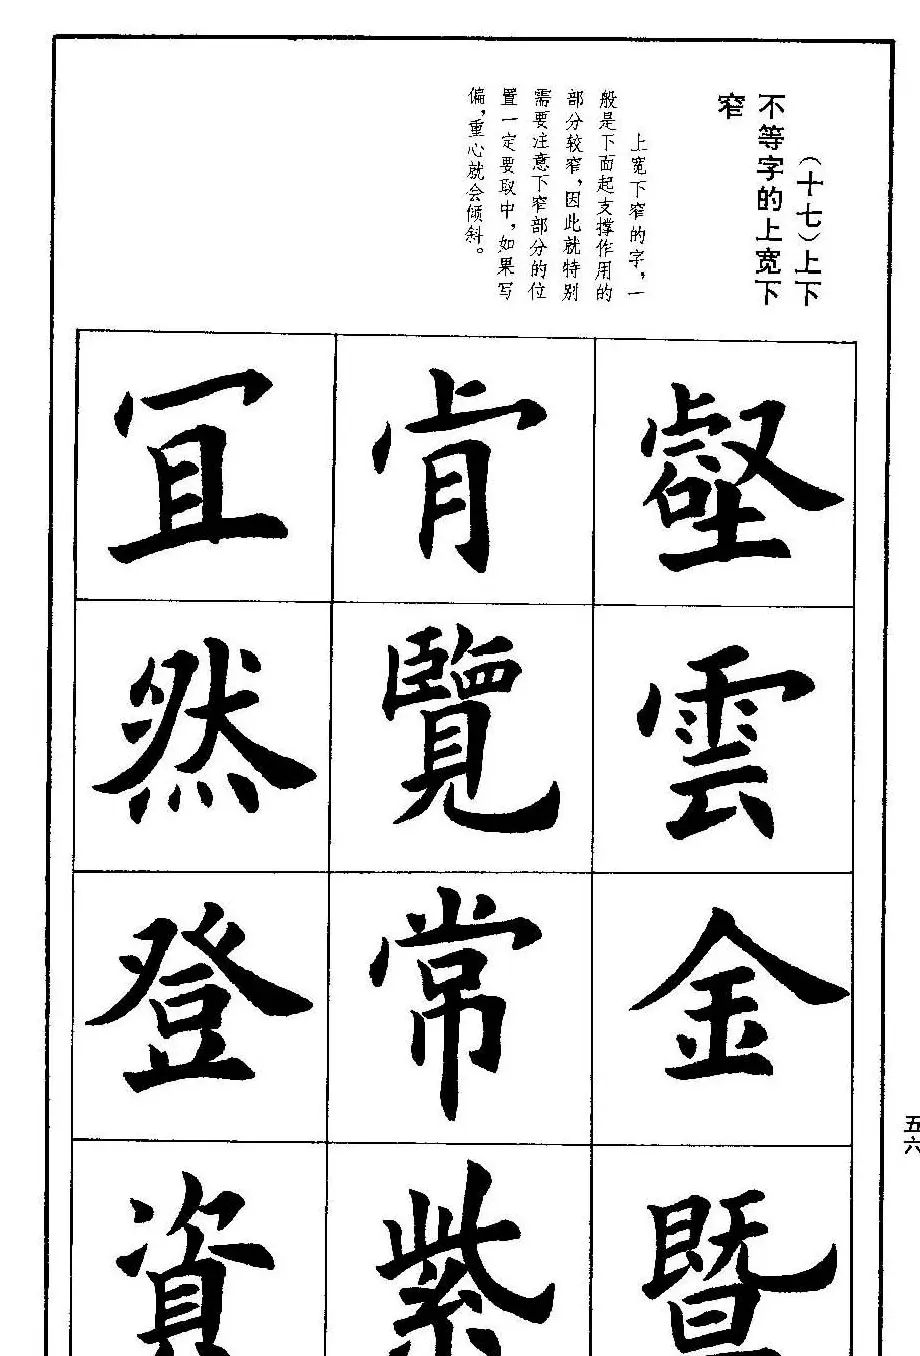 （十七）上下
不等字的上宽下
窄
上宽下窄的字，一
般是下面起支撑作用的
部分较窄，因此就特别
需要注意下窄部分的位
置一定要取中，如果写
偏，重心就会倾斜。
壑雲金暨
肯覽常紫
冝然登資
五六